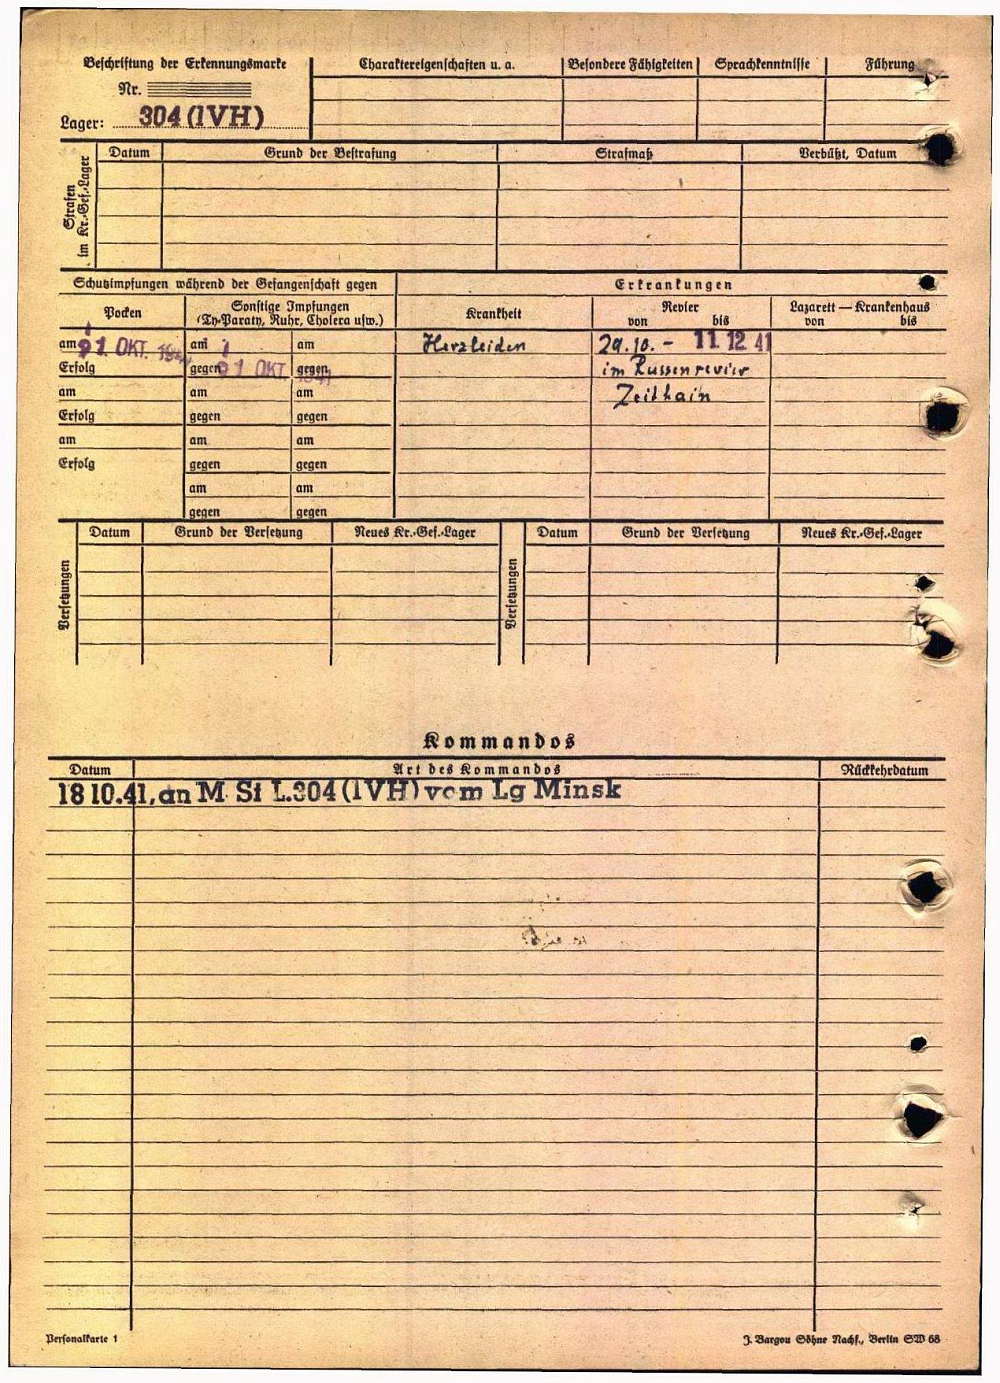 Beschriftung der Erkennungsmarke
Nr.
Lager: 304 (IVH)
Charaktereigenschaften u. a. Besondere Fähigkeiten Sprachkenntnisse Führung
Strafen im Kr.-Gef.-Lager
Datum Grund der Bestrafung Strafmaß Verbüßt, Datum
Schutzimpfungen während der Gefangenschaft gegen
Erkrankungen
Pocken
Sonstige Impfungen
(Ty-Paraty, Ruhr, Cholera usw.)
Krankheit
Revier
von bis
Lazarett — Krankenhaus
von bis
am 21. OKT. 1941 am am Herzleiden 29.10. - 11. 12. 41
Erfolg gegen 21 OKT. 1941 gegen im Russenrevier
am am am Zeithain
Erfolg gegen gegen
am am am
Erfolg gegen gegen
am am
gegen gegen
Versetzungen
Datum Grund der Versetzung Neues Kr.-Gef.-Lager
Versetzungen
Datum Grund der Versetzung Neues Kr.-Gef.-Lager
Kommandos
Datum Art des Kommandos Rückkehrdatum
18 10.41, an M St L.304 (IVH) vom Lg Minsk
Personalkarte 1
J. Bargou Söhne Nachf., Berlin SW 68